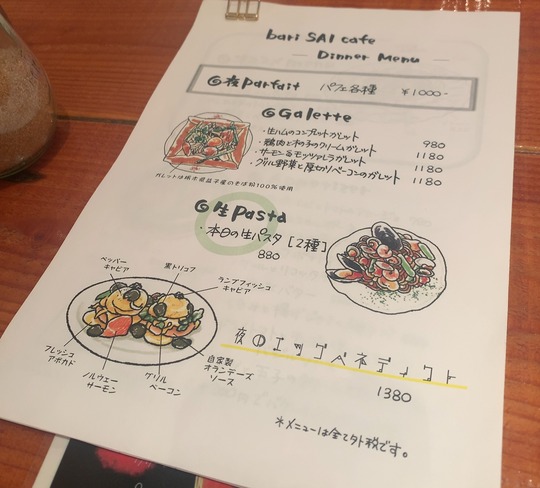 bari SAI cafe
Dinner Menu
夜parfait パフェ各種 ¥1000-
Galette
・生ハムのコンプレットガレット 980
・鶏肉と木の子のクリームガレット 1180
・サーモン&モッツァレラガレット 1180
・グリル野菜と厚切りベーコンのガレット 1180
ガレットは栃木県益子産のそば粉100%使用
生pasta
・本日の生パスタ [2種]
880
ペッパーキャビア
黒トリュフ
ランプフィッシュキャビア
フレッシュアボカド
ノルウェーサーモン
グリルベーコン
自家製オランデーズソース
夜のエッグベネディクト
1380
*メニューは全て外税です。